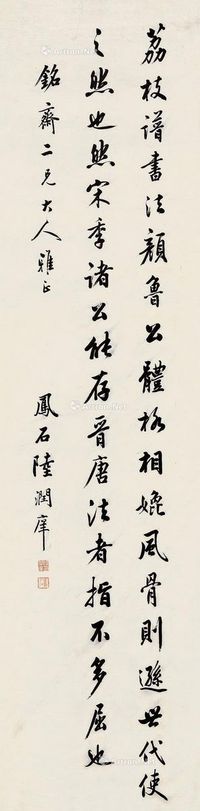 荔枝譜書法顏魯公體格相媲風骨則遜世代使
之然也然宋季諸公能存晉唐法者指不多屈也
銘齋二兄大人雅正
鳳石陸潤庠